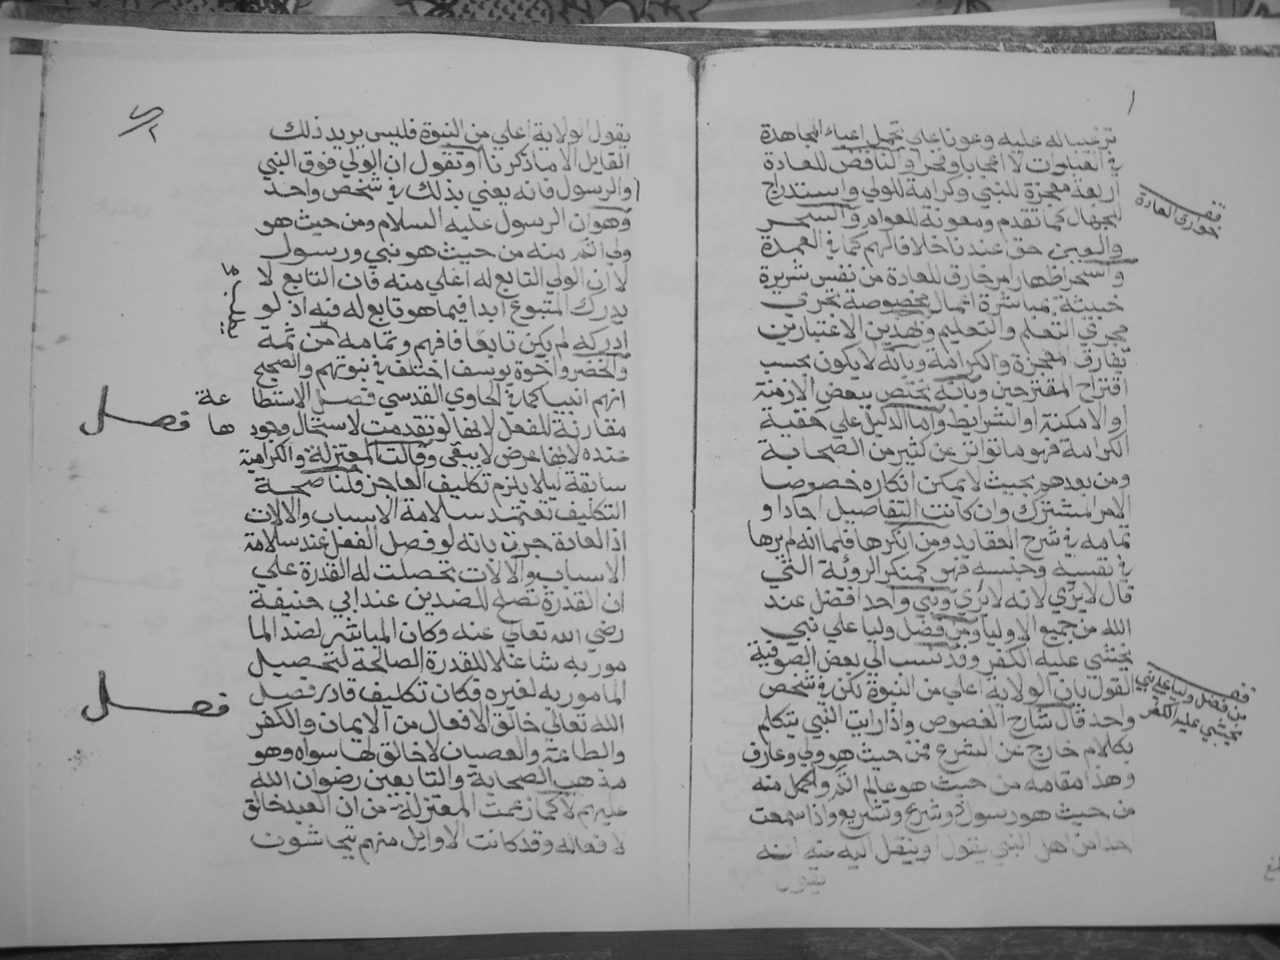 ترغيبا له عليه وعونا على تحمل اعباء المجاهدة
في العبادات لا اعجابا وفخرا والناقض للعادة
اربعة معجزة للنبي وكرامة للولي واستدراج
للجهال كما تقدم ومعونة للعوام والسحر
والعين حق عندنا خلافا لهم كما في العمدة
والسحر اظهار امر خارق للعادة من نفس شريرة
خبيثة بمباشرة اعمال مخصوصة تجري
مجري التعلم والتعليم وبهذين الاعتبارين
يفارق المعجزة والكرامة وبانه لا يكون بحسب
اقتراح المقترحين وبانه يختص ببعض الازمنة
او الامكنة او الشرايط واما الدليل علي حقية
الكرامة فهو ما تواتر عن كثير من الصحابة
ومن بعدهم بحيث لا يمكن انكاره خصوصا
الامر المشترك وان كانت التفاصيل احادا و
تمامه في شرح العقايد ومن انكرها فلما انه لم يرها
في نفسه وجنسه فهو كمنكر الروئة التي
قال لا يري لانه لا يري ونبي واحد افضل عند
الله من جميع الاوليا ومن فضل وليا علي نبي
يخشي عليه الكفر وقد نسب الي بعض الصوفية
القول بان الولاية اعلي من النبوة لكن في شخص
واحد قال شارح الفصوص واذا رايت النبي يتكلم
بكلام خارج عن الشرع فمن حيث هو ولي وعارف
وهذا مقامه من حيث هو عالم اتم واكمل منه
من حيث هو رسول وشرع وتشريع واذا سمعت
احدا من اهل النبي يقول او ينقل اليه عنه انه
يقول
خوارق العادة
من فضل وليا علي نبي
يخشي عليه الكفر
يقول الولاية اعلي من النبوة فليس يريد ذلك
القايل الا ما ذكرنا او تقول ان الولي فوق النبي
والرسول فانه يعني بذلك في شخص واحد
وهو ان الرسول عليه السلام ومن حيث هو
ولي اتم منه من حيث هو نبي ورسول
لا ان الولي التابع له اعلي منه فان التابع لا
يدرك المتبوع ابدا فيما هو تابع له فيه اذ لو
ادركه لم يكن تابعا فافهم وتمامه من ثمة
والخضر واخوة يوسف اختلف في نبوتهم والصحيح
انهم انبيا كما في الحاوي القدسي فصل الاستطاعة
مقارنة للفعل لانها لو تقدمت لاستحال وجودها
عنده لانها عرض لا يبقي وقالت المعتزلة والكرامية
سابقة ليلا يلزم تكليف العاجز قلنا صحة
التكليف تعتمد سلامة الاسباب والالات
اذ العادة جرت بانه لو فصل الفعل عند سلامة
الاسباب والالات تحصلت له القدرة علي
ان القدرة تصلح للضدين عند ابي حنيفة
رضي الله تعالي عنه وكان المباشر لضد الما
مور به شاغلا للقدرة الصالحة لتحصيل
المامور به لغيره فكان تكليف قادر فصل
الله تعالي خالق الافعال من الايمان والكفر
والطاعة والعصيان لا خالق لها سواه وهو
مذهب الصحابة والتابعين رضوان الله
عليهم لا كما زعمت المعتزلة من ان العبد خالق
لافعاله وقد كانت الاوايل منهم يتحاشون
فصل
فصل